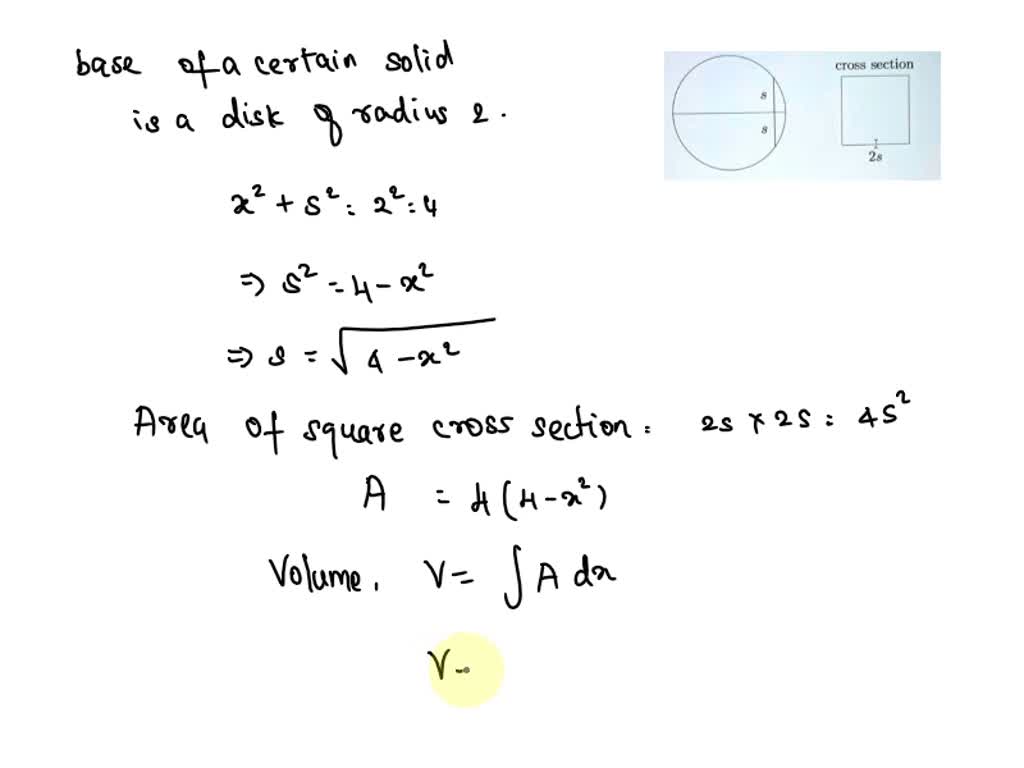 base of a certain solid
is a disk of radius 2.
cross section
s
s
2s
x² + s² = 2² = 4
⇒ s² = 4 - x²
⇒ s = √(4 - x²)
Area of square cross section = 2s × 2s = 4s²
A = 4(4 - x²)
Volume, V = ∫ A dx
V -